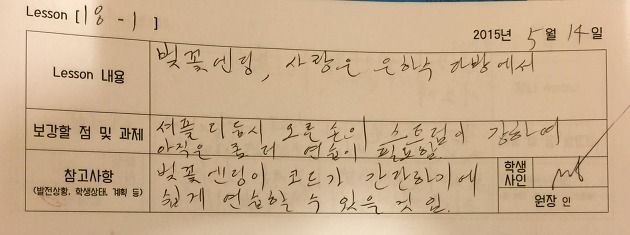 Lesson [18-1] 2015년 5월 14일
Lesson 내용 벚꽃엔딩, 사랑은 은하수 다방에서
보강할 점 및 과제 셔플 리듬시 오른손의 스트럼이 강하여
아직은 좀 더 연습이 필요함.
참고사항 벚꽃엔딩이 코드가 간단하기에 학생
(발전상황, 학생상태, 계획 등) 쉽게 연습할 수 있을 것임. 사인
원장 인